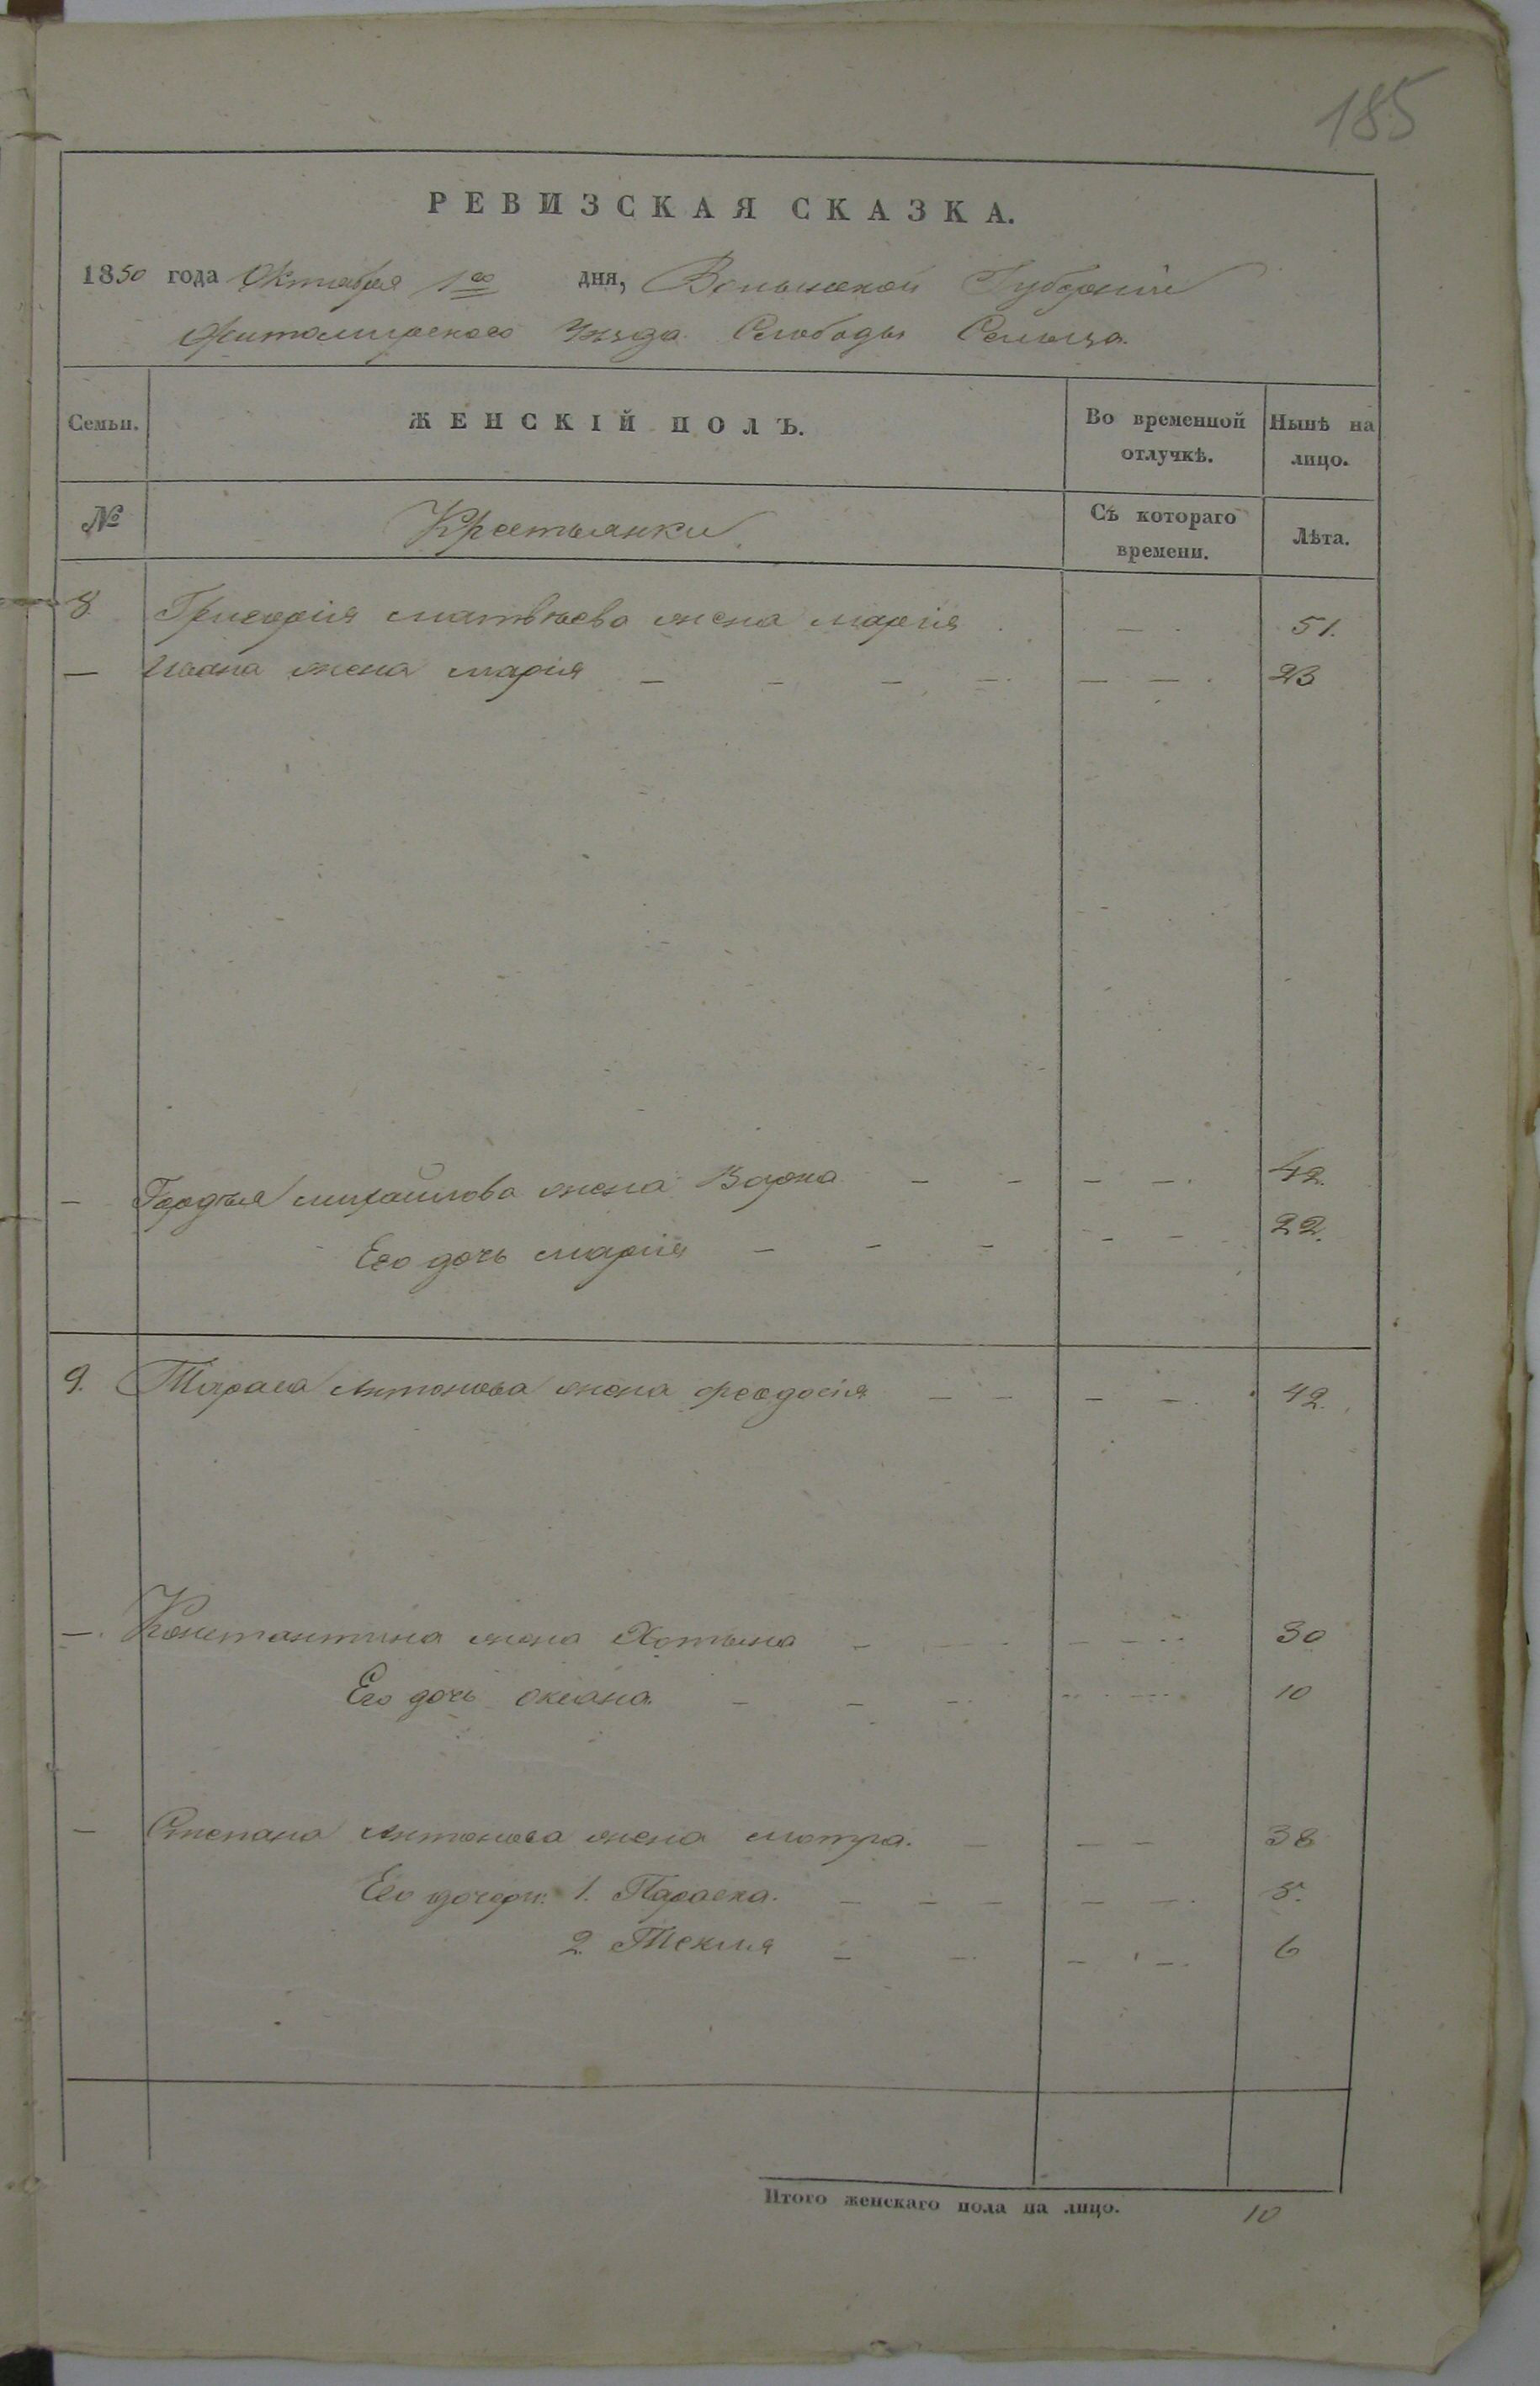 185
РЕВИЗСКАЯ СКАЗКА.
1850 года Октября 1го дня, Волынской Губерніи
Житомирскаго Уѣзда Слободы Сельца.
Семьи. ЖЕНСКІЙ ПОЛЪ. Во временной отлучкѣ. Нынѣ на лицо.
№ Крестьянки Съ котораго времени. Лѣта.
8 Григорія Матвѣева жена Марія — 51.
— Ивана жена Марія — — — — — — 23
— Гордѣя Михайлова жена Варка — — — — 42.
Его дочь Марія — — — — — 22.
9. Тараса Антонова жена Феодосія — — — — 42.
— Константина жена Хотына — — — 30
Его дочь Оксана — — — — — 10
— Степана Антонова жена Мотра. — — — 38
Его дочери: 1. Параска. — — — — — 8.
2. Текля — — — — 6
Итого женскаго пола на лицо. 10